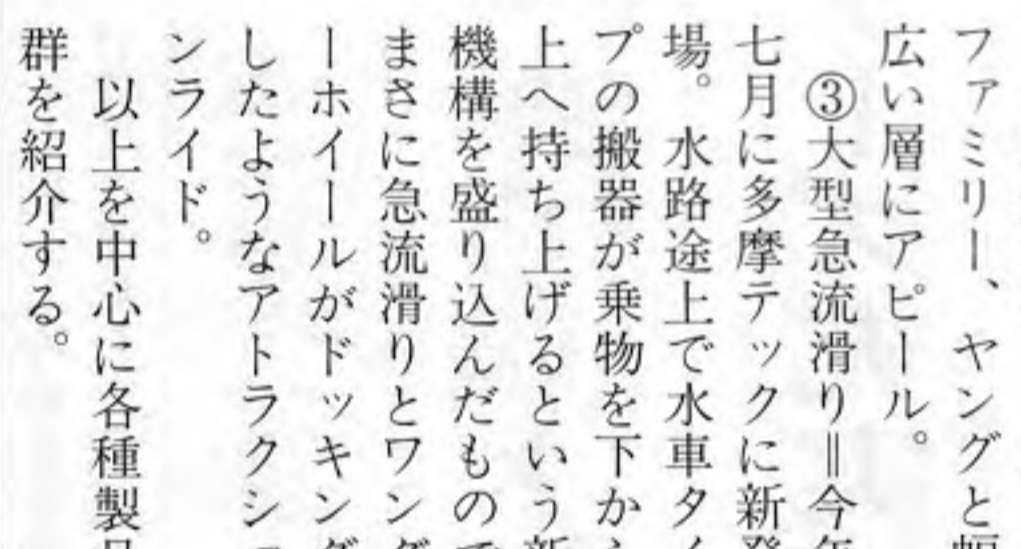 ファミリー、ヤングと幅
広い層にアピール。
③大型急流滑り＝今年
七月に多摩テックに新登
場。水路途上で水車タイ
プの搬器が乗物を下から
上へ持ち上げるという新
機構を盛り込んだもので
まさに急流滑りとワンダ
ーホイールがドッキング
したようなアトラクショ
ンライド。
以上を中心に各種製品
群を紹介する。